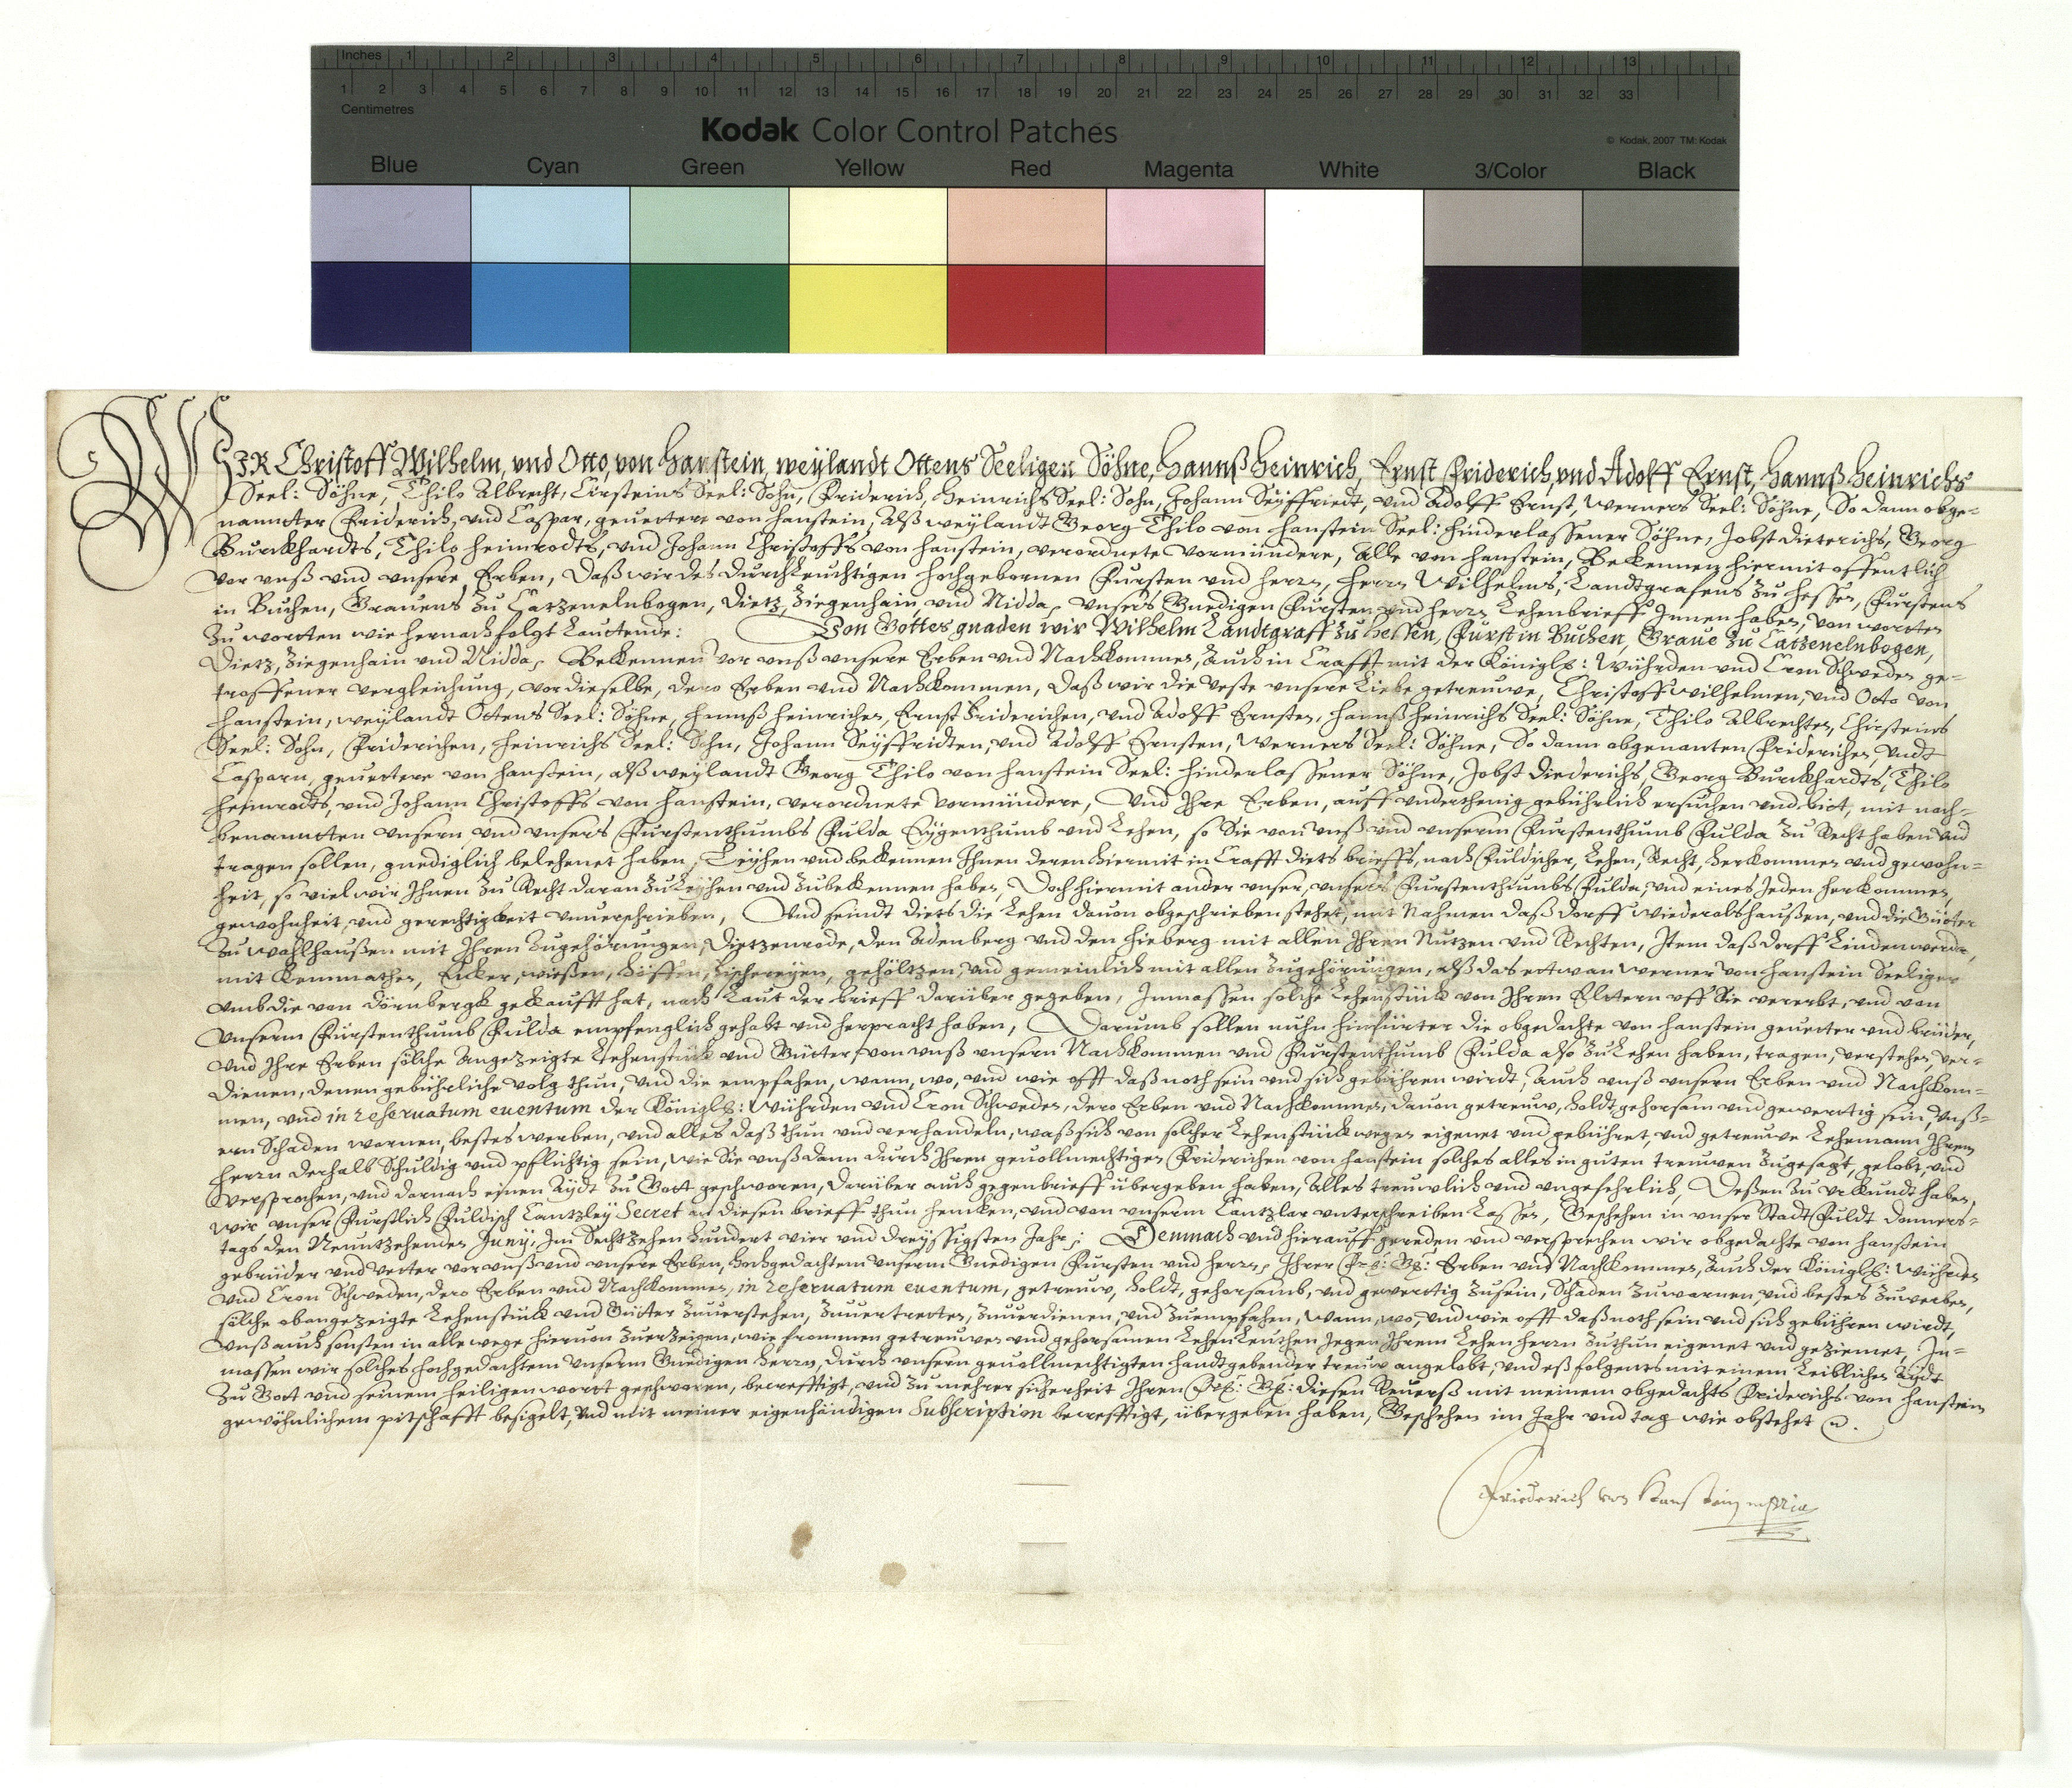 Inches 1 2 3 4 5 6 7 8 9 10 11 12 13
1 2 3 4 5 6 7 8 9 10 11 12 13 14 15 16 17 18 19 20 21 22 23 24 25 26 27 28 29 30 31 32 33
Centimetres
Kodak Color Control Patches
© Kodak, 2007 TM: Kodak
Blue Cyan Green Yellow Red Magenta White 3/Color Black
WIR Christoff Wilhelm, vnd Otto, von Hanstein, weÿlandt Ottens Seeligen Söhne, Hannß Heinrich, Ernst Friderich, vnd Adolff Ernst, Hannß Heinrichs
Seel: Söhne, Thilo Albrecht, Cirsteins Seel: Sohn, Friderich, Heinrichs Seel: Sohn, Johann Seÿffriedt, vnd Adolff Ernst, Werners Seel: Söhne, So dann obge-
nannter Friderich, vnd Caspar, geuettere von Hanstein, Alß weÿlandt Georg Thilo von Hanstein Seel: hinderlassener Söhne, Jobst Dieterichs, Georg
Burckhardts, Thilo Heimrodts, vnd Johann Christoffs von Hanstein, verordnete Vormündere, Alle von Hanstein, Bekennen hiermit offentlich
vor vnß vnd vnsere Erben, Daß wir des durchleuchtigen hochgebornen Fursten vnd Herrn, Herrn Wilhelms, Landtgrafens zu Hessen, Furstens
in Buchen, Grauens zu Catzenelnbogen, Dietz, Ziegenhain vnd Nidda, vnsers Gnedigen Fursten vnd Herrn Lehenbrieff Innen haben, von wortten
zu wortten wie hernach folgt Lauttende: Von Gottes gnaden wir Wilhelm Landtgraff zu Hessen, Furst in Buchen, Graue zu Catzenelnbogen,
Dietz, Ziegenhain vnd Nidda, Bekennen vor vnß vnsere Erben vnd Nachkommen, Auch in Crafft mit der Königl: Wührden vnd Cron Schweden ge-
troffener vergleichung, vor dieselbe, dero Erben vnd Nachkommen, Daß wir die Veste vnsere Liebe getreuwe, Christoff Wilhelmen, vnd Otto von
Hanstein, weÿlandt Ottens Seel: Söhne, Hannß Heinrichen, Ernst Friderichen, vnd Adolff Ernsten, Hannß Heinrichs Seel: Söhne, Thilo Albrechten, Chirsteins
Seel: Sohn, Friderichen, Heinrichs Seel: Sohn, Johann Seÿffridten, vnd Adolff Ernsten, Werners Seel: Söhne, So dann obgenanten Friderichen, vndt
Casparn, geuettere von Hanstein, alß weÿlandt Georg Thilo von Hanstein Seel: hinderlassener Söhne, Jobst Diederichs, Georg Burckhardts, Thilo
Heimrodts, vnd Johann Christoffs von Hanstein, verordnete Vormündere, Vnd Ihre Erben, auff vnderthenig gebührlich ersuchen vnd bitt, mit nach-
benannten vnsern vnd vnsers Furstenthumbs Fulda Eÿgenthumb vnd Lehen, so Sie von vnß vnd vnserm Furstenthumb Fulda zu Recht haben vnd
tragen sollen, gnediglich belehenet haben, Leÿhen vnd bekennen Ihnen deren hiermit in Crafft diets brieffs, nach Fuldischer, Lehen, Recht, herkommen vnd gewohn-
heit, so viel wir Ihnen zu Recht daran zu Leÿhen vnd zubekennen haben, Doch hiermit ander vnser, vnsers Furstenthumbs Fulda, vnd eines Jeden herkommen,
gewohnheit, vnd gerechtigkeit vnuerschrieben, Vnd seindt diets die Lehen dauon obgeschrieben stehet, mit Nahmen daß dorff Wiederolshaußen, vnd die Gütter
zu Wahlhaußen mit Ihren zugehörungen, Dietzenrode, den Adenberg vnd den Hieberg mit allen Ihren Nutzen vnd Rechten, Item daß dorff Lindenwerda,
mit Kemmathen, Ecker, wießen, Fischereÿen, gehöltzen, vnd gemeinlich mit allen zugehörungen, alß das ettwan Werner von Hanstein Seeliger
vmb die von Dörnbergk gekaufft hat, nach Laut der brieff darüber gegeben, Inmassen solche Lehenstück von Ihren Eltern vff Sie vererbt, vnd von
vnserm Furstenthumb Fulda empfenglich gehabt vnd herpracht haben, Darumb sollen nuhn hinfürter die obgedachte von Hanstein geuetter vnd brüder,
vnd Ihre Erben sölche angezeigte Lehenstück vnd Gütter, von vnß vnsern Nachkommen vnd Furstenthumb Fulda also zu Lehen haben, tragen, verstehen, ver-
dienen, denen gebührliche volg thun, vnd die empfahen, wann, wo, vnd wie offt daß noth sein vnd sich gebühren wirdt, Auch vnß vnsern Erben vnd Nachkom-
men, vnd in reseruatum euentum der Königl: Wührden vnd Cron Schweden, dero Erben vnd Nachkommen, dauon getreuw, holdt, gehorsam vnd gewerttig sein, Vnß-
ern Schaden warnen, bestes werben, vnd alles daß thun vnd verhandeln, waß sich von solcher Lehenstück wegen eigenet vnd gebühret, vnd getreuwe Lehemann Ihrem
Herrn deshalb Schuldig vnd pflichtig sein, wie Sie vnß dann durch Ihren geuollmechtigen Friderichen von Hanstein solches alles in guten treuwen zugesagt, gelobt, vnd
versprochen, vnd darnach einen Aÿdt zu Gott geschworen, darüber auch gegenbrieff übergeben haben, Alles treuwlich vnd vngefehrlich, Deßen zu vrkundt haben,
wir vnser Furstlich Fuldisch Cantzleÿ Secret an diesen brieff thun hencken, vnd von vnserm Cantzlar vnterschreiben Lassen, Geschehen in vnser Stadt Fuldt donners-
tags den Neuntzehenden Junÿ, Im Sechtzehen hundert vier vnd dreÿssigsten Jahr: Demnach vnd hierauff gereden vnd versprechen wir obgedachte von Hanstein
gebrüder vnd Vetter vor vnß vnd vnsere Erben, hochgedachtem vnserm Gnedigen Fursten vnd Herrn, Ihrer Erben vnd Nachkommen, Auch der Königl: Wührden
vnd Cron Schweden, dero Erben vnd Nachkommen, in reseruatum euentum, getreuw, holdt, gehorsamb, vnd gewerttig zu sein, Schaden zu warnen, vnd bestes zuwerben,
sölche obangezeigte Lehenstück vnd Gütter zuuerstehen, zuuertretten, zuuerdienen, vnd zuempfahen, wann, wo, vnd wie offt daß noth sein vnd sich gebühren wirdt,
Vnß auch sonsten in alle wege hieruon zuerzeigen, wie frommen getreuwen vnd gehorsamen Lehen Leuthen gegen Ihrem Lehen herrn zuthun eigenet vnd geziemet, In-
massen wir solches hochgedachtem vnserm Gnedigen Herrn, durch vnsern geuollmechtigten handtgebender treuw angelobt, vnd eß folgents mit einem Leiblichen Aÿdt
zu Gott vnd seinem heiligen wortt geschworen, becrefftigt, vnd zu mehrer sicherheit Ihren diesen Reuerß mit meinem obgedachts Friderichs von Hanstein
gewöhnlichem pitschafft besigelt, vnd mit meiner eigenhändigen Subscription becrefftigt, übergeben haben, Geschehen im Jahr vnd tag wie obstehet
Friederich von Hanstein mpria